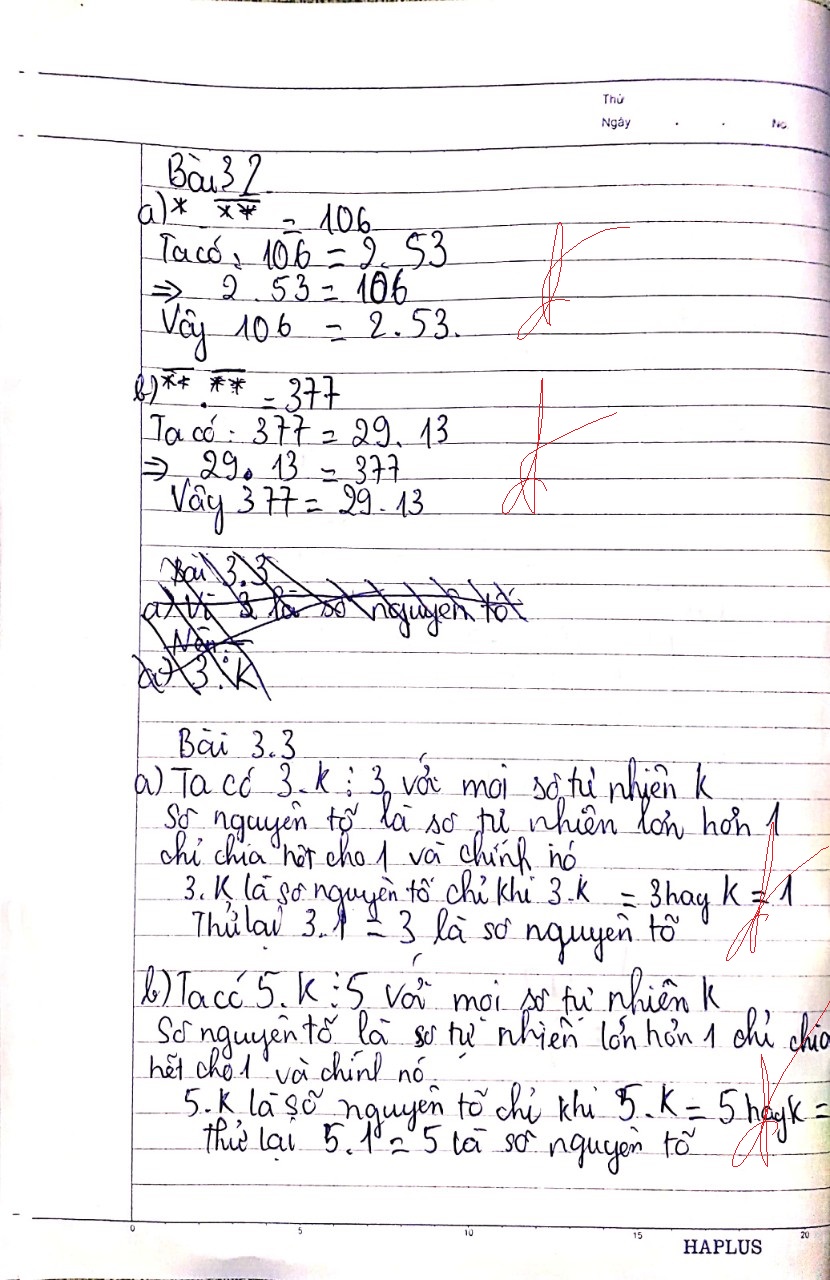 Thứ
Ngày . . No
Bài 32
a) * . ** = 106
Ta có : 106 = 2. 53
⇒ 2 . 53 = 106
Vây 106 = 2.53.
b) ** . ** = 377
Ta có : 377 = 29. 13
⇒ 29. 13 = 377
Vây 377 = 29.13
Bài 3.3
a) Vì 3 là số nguyên tố
Nên
a) 3.k
Bài 3.3
a) Ta có 3.k ⋮ 3 với moi số tự nhiên k
Số nguyên tố là số tự nhiên lơn hơn 1
chỉ chia hết cho 1 và chính nó
3.k là số nguyên tố chỉ khi 3.k = 3 hay k = 1
Thử lại 3.1 = 3 là số nguyên tố
b) Ta có 5.k ⋮ 5 với mọi số tự nhiên k
Số nguyên tố là số tự nhiên lớn hơn 1 chỉ chia
hết cho 1 và chính nó.
5.k là số nguyên tố chỉ khi 5.k = 5 hay k =
thử lại 5.1 = 5 là số nguyên tố
0 5 10 15 20
HAPLUS